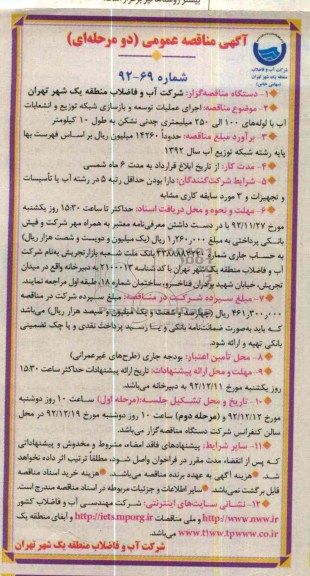 آگهی مناقصه عمومی (دو مرحله‌ای)
شرکت آب و فاضلاب
منطقه یک شهر تهران
(سهامی خاص)
شماره ۶۹-۹۲
۱- دستگاه مناقصه‌گزار: شرکت آب و فاضلاب منطقه یک شهر تهران
۲- موضوع مناقصه: اجرای عملیات توسعه و بازسازی شبکه توزیع و انشعابات
آب با لوله‌های ۱۰۰ الی ۲۵۰ میلیمتری چدنی نشکن به طول ۱۰ کیلومتر
۳- برآورد مبلغ مناقصه: حدوداً ۱۴۲۶۰ میلیون ریال بر اساس فهرست بها
پایه رشته شبکه توزیع آب سال ۱۳۹۲
۴- مدت کار: از تاریخ ابلاغ قرارداد به مدت ۶ ماه شمسی
۵- شرایط شرکت‌کنندگان: دارا بودن حداقل رتبه ۵ در رشته آب یا تأسیسات
و تجهیزات و ۳ مورد سابقه کاری مشابه
۶- مهلت و نحوه و محل دریافت اسناد: حداکثر تا ساعت ۱۵:۳۰ روز یکشنبه
مورخ ۹۲/۱۱/۲۷ با در دست داشتن معرفی‌نامه معتبر به همراه مهر شرکت و فیش
بانکی پرداختی به مبلغ ۱٫۲۶۰٫۰۰۰ ریال (یک میلیون و دویست و شصت هزار ریال)
به حساب جاری شماره بانک ملت شعبه بازار تجریش به‌نام شرکت
آب و فاضلاب منطقه یک شهر تهران با کد شناسه ۲۱۰۰۰۱۳ به دبیرخانه واقع در میدان
تجریش، خیابان شهید برادران فناخسرو، ساختمان شماره ۱۸، طبقه اول مراجعه نمایند.
۷- مبلغ سپرده شرکت در مناقصه: مبلغ سپرده شرکت در مناقصه
۴۶۱٫۳۰۰٫۰۰۰ ریال (چهارصد و شصت و یک میلیون و سیصد هزار ریال) می‌باشد
که باید به‌صورت ضمانت‌نامه بانکی و یا رسید پرداخت نقدی و یا چک تضمینی
بانکی تهیه و ارائه شود.
۸- محل تأمین اعتبار: بودجه جاری (طرح‌های غیرعمرانی)
۹- مهلت و محل ارائه پیشنهادات: تاریخ ارائه پیشنهادات حداکثر ساعت ۱۵:۳۰
روز یکشنبه مورخ ۹۲/۱۲/۱۱ به دبیرخانه می‌باشد.
۱۰- تاریخ و محل تشکیل جلسه: (مرحله اول) ساعت ۱۰ روز دوشنبه
مورخ ۹۲/۱۲/۱۲ و (مرحله دوم) ساعت ۱۰ روز دوشنبه مورخ ۹۲/۱۲/۱۹ در محل
سالن کنفرانس شرکت دستگاه مناقصه‌گزار می‌باشد.
۱۱- سایر شرایط: پیشنهادهای فاقد امضاء، مشروط و مخدوش و پیشنهاداتی
که پس از انقضاء مدت مقرر در فراخوان واصل شود، مطلقاً ترتیب اثر داده نخواهد
شد. هزینه آگهی به عهده برنده مناقصه می‌باشد. هزینه خرید اسناد مناقصه
قابل برگشت نمی‌باشد. سایر اطلاعات و جزئیات مربوطه در اسناد مناقصه مندرج است.
۱۲- نشانی سایت‌های اینترنتی: شرکت مهندسی آب و فاضلاب کشور
http://www.nww.ir و ملی مناقصات http://iets.mporg.ir و آبفای منطقه یک
www.t1ww.tpww.co.ir می‌باشد.
شرکت آب و فاضلاب منطقه یک شهر تهران